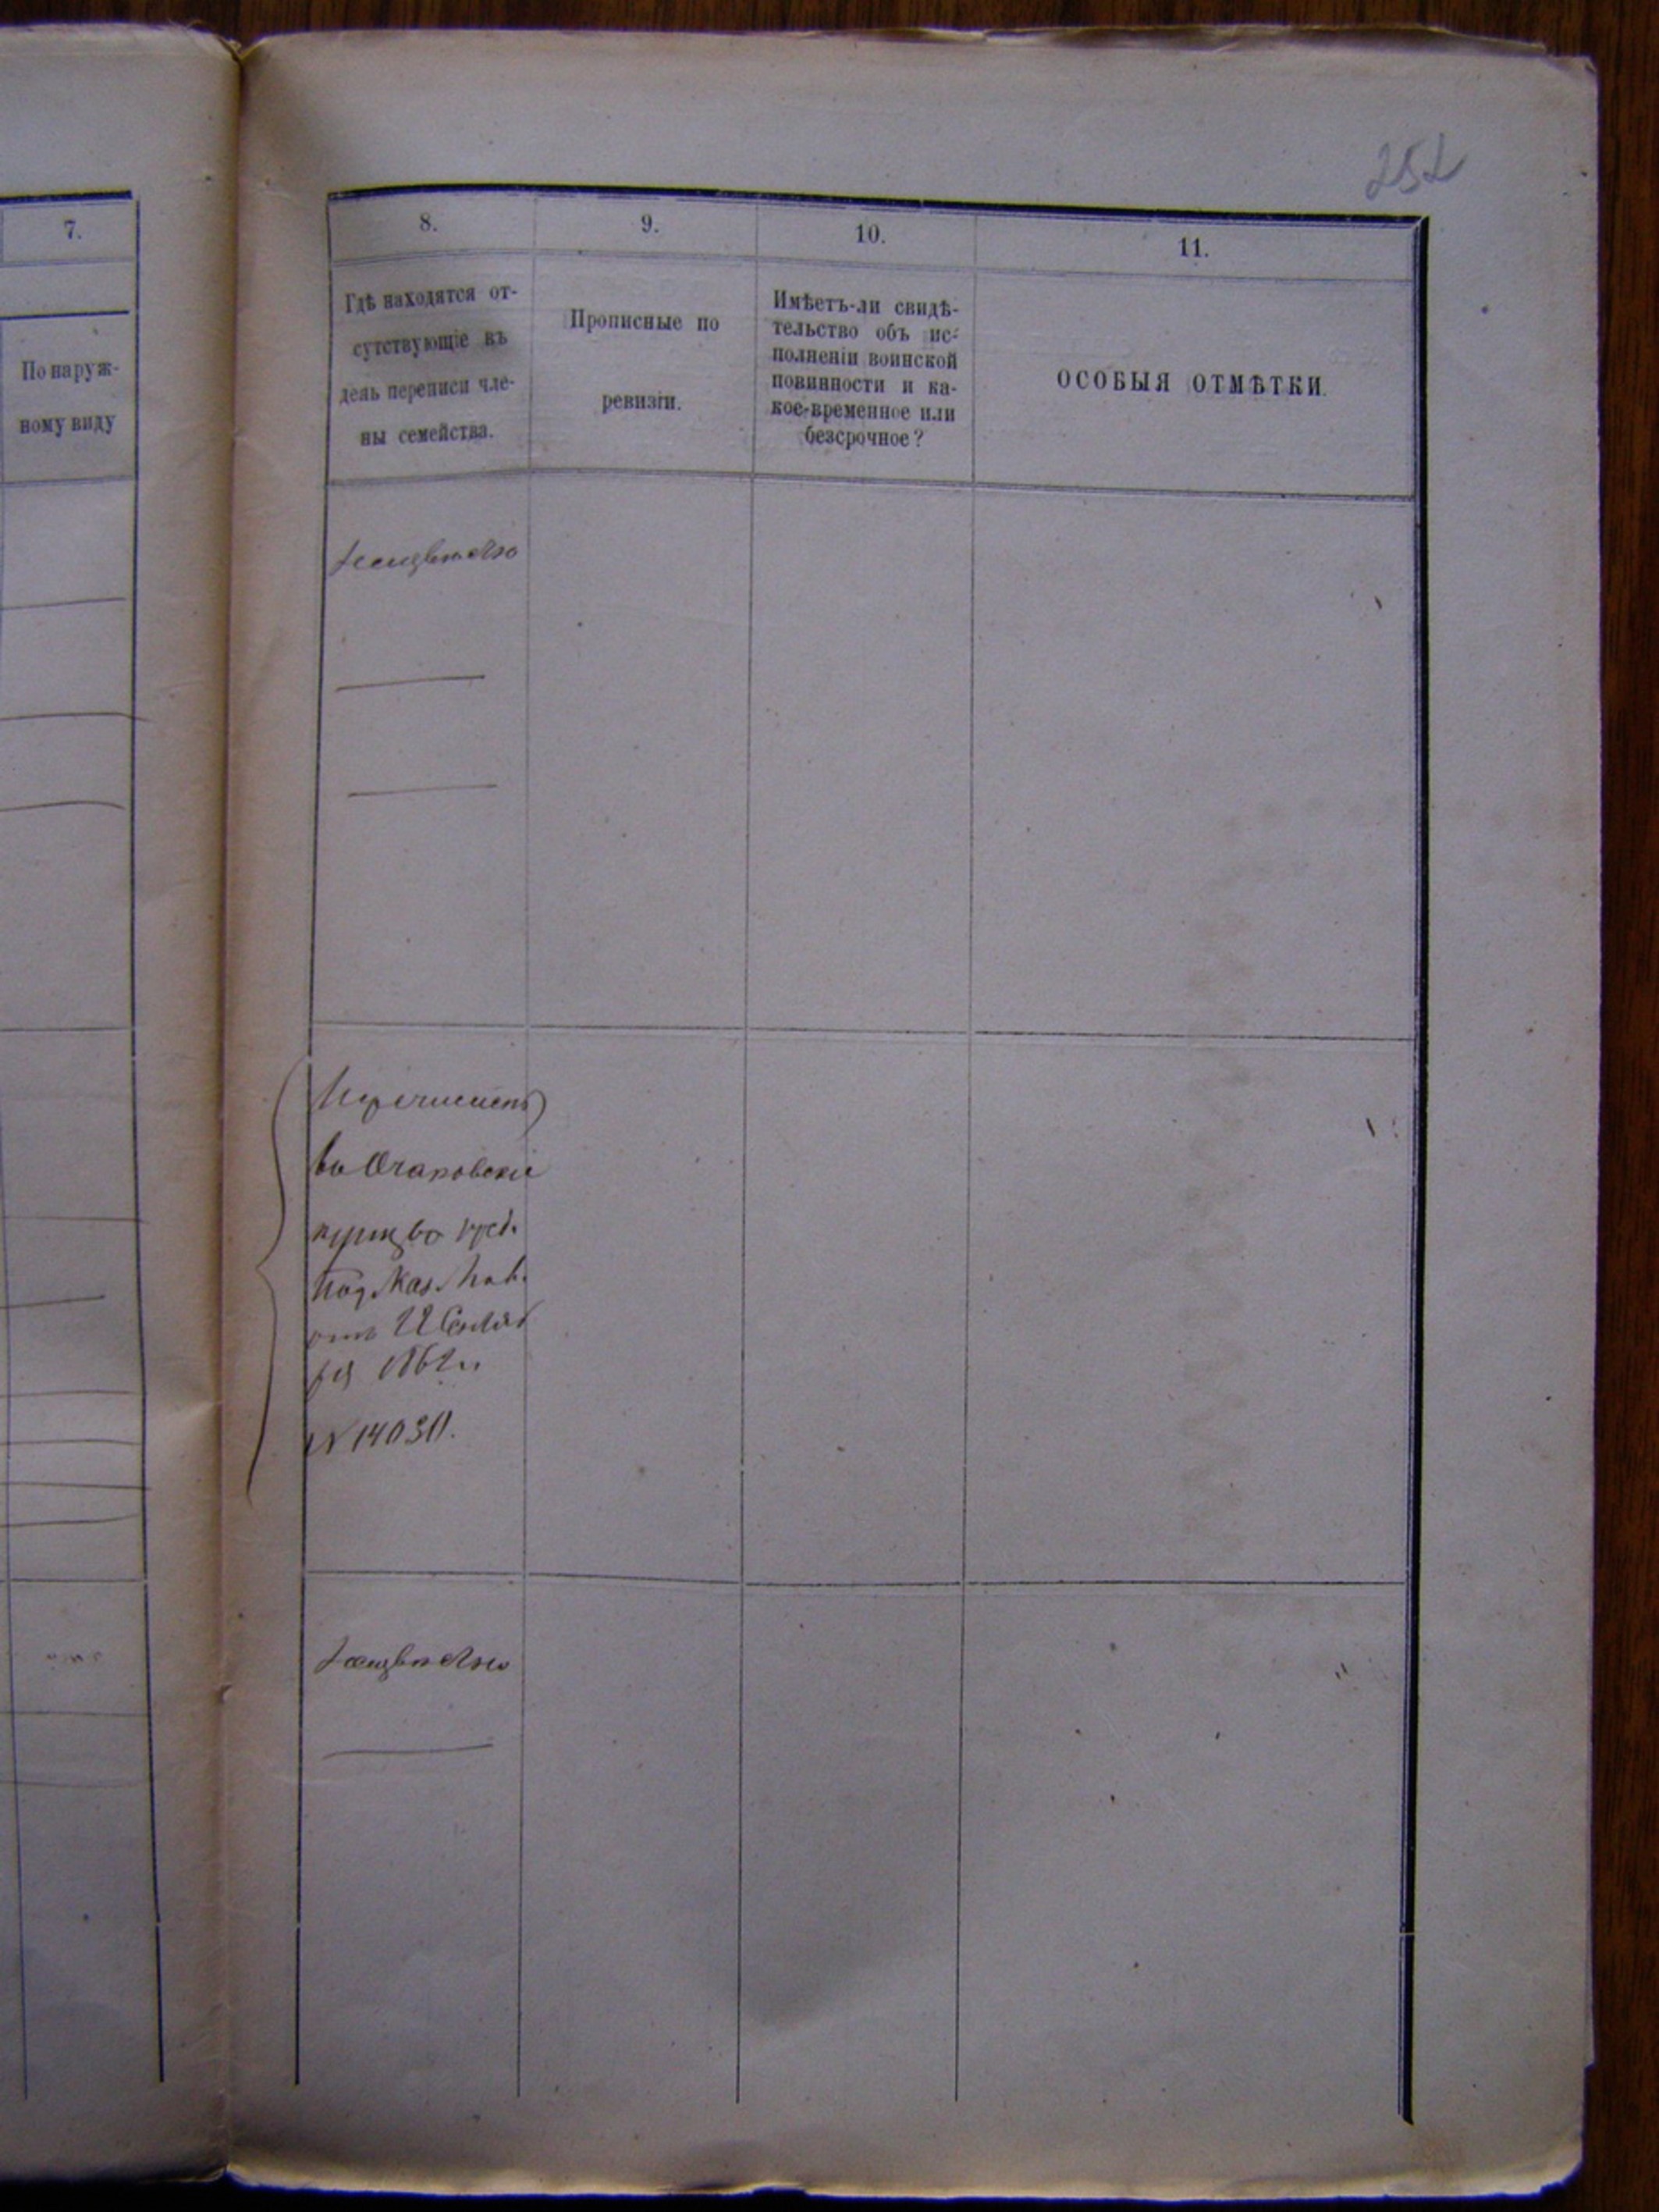 252
7.
По наруж-
ному виду
8.
9.
10.
11.
Гдѣ находятся от-
сутствующіе въ
день переписи чле-
ны семейства.
Прописные по
ревизіи.
Имѣетъ-ли свидѣ-
тельство объ ис-
полненіи воинской
повинности и ка-
кое-временное или
безсрочное?
ОСОБЫЯ ОТМѢТКИ.
Перечислены
въ Очаковское
купцы пред.
Каз. Пал.
отъ
1862 г.
№ 14030.